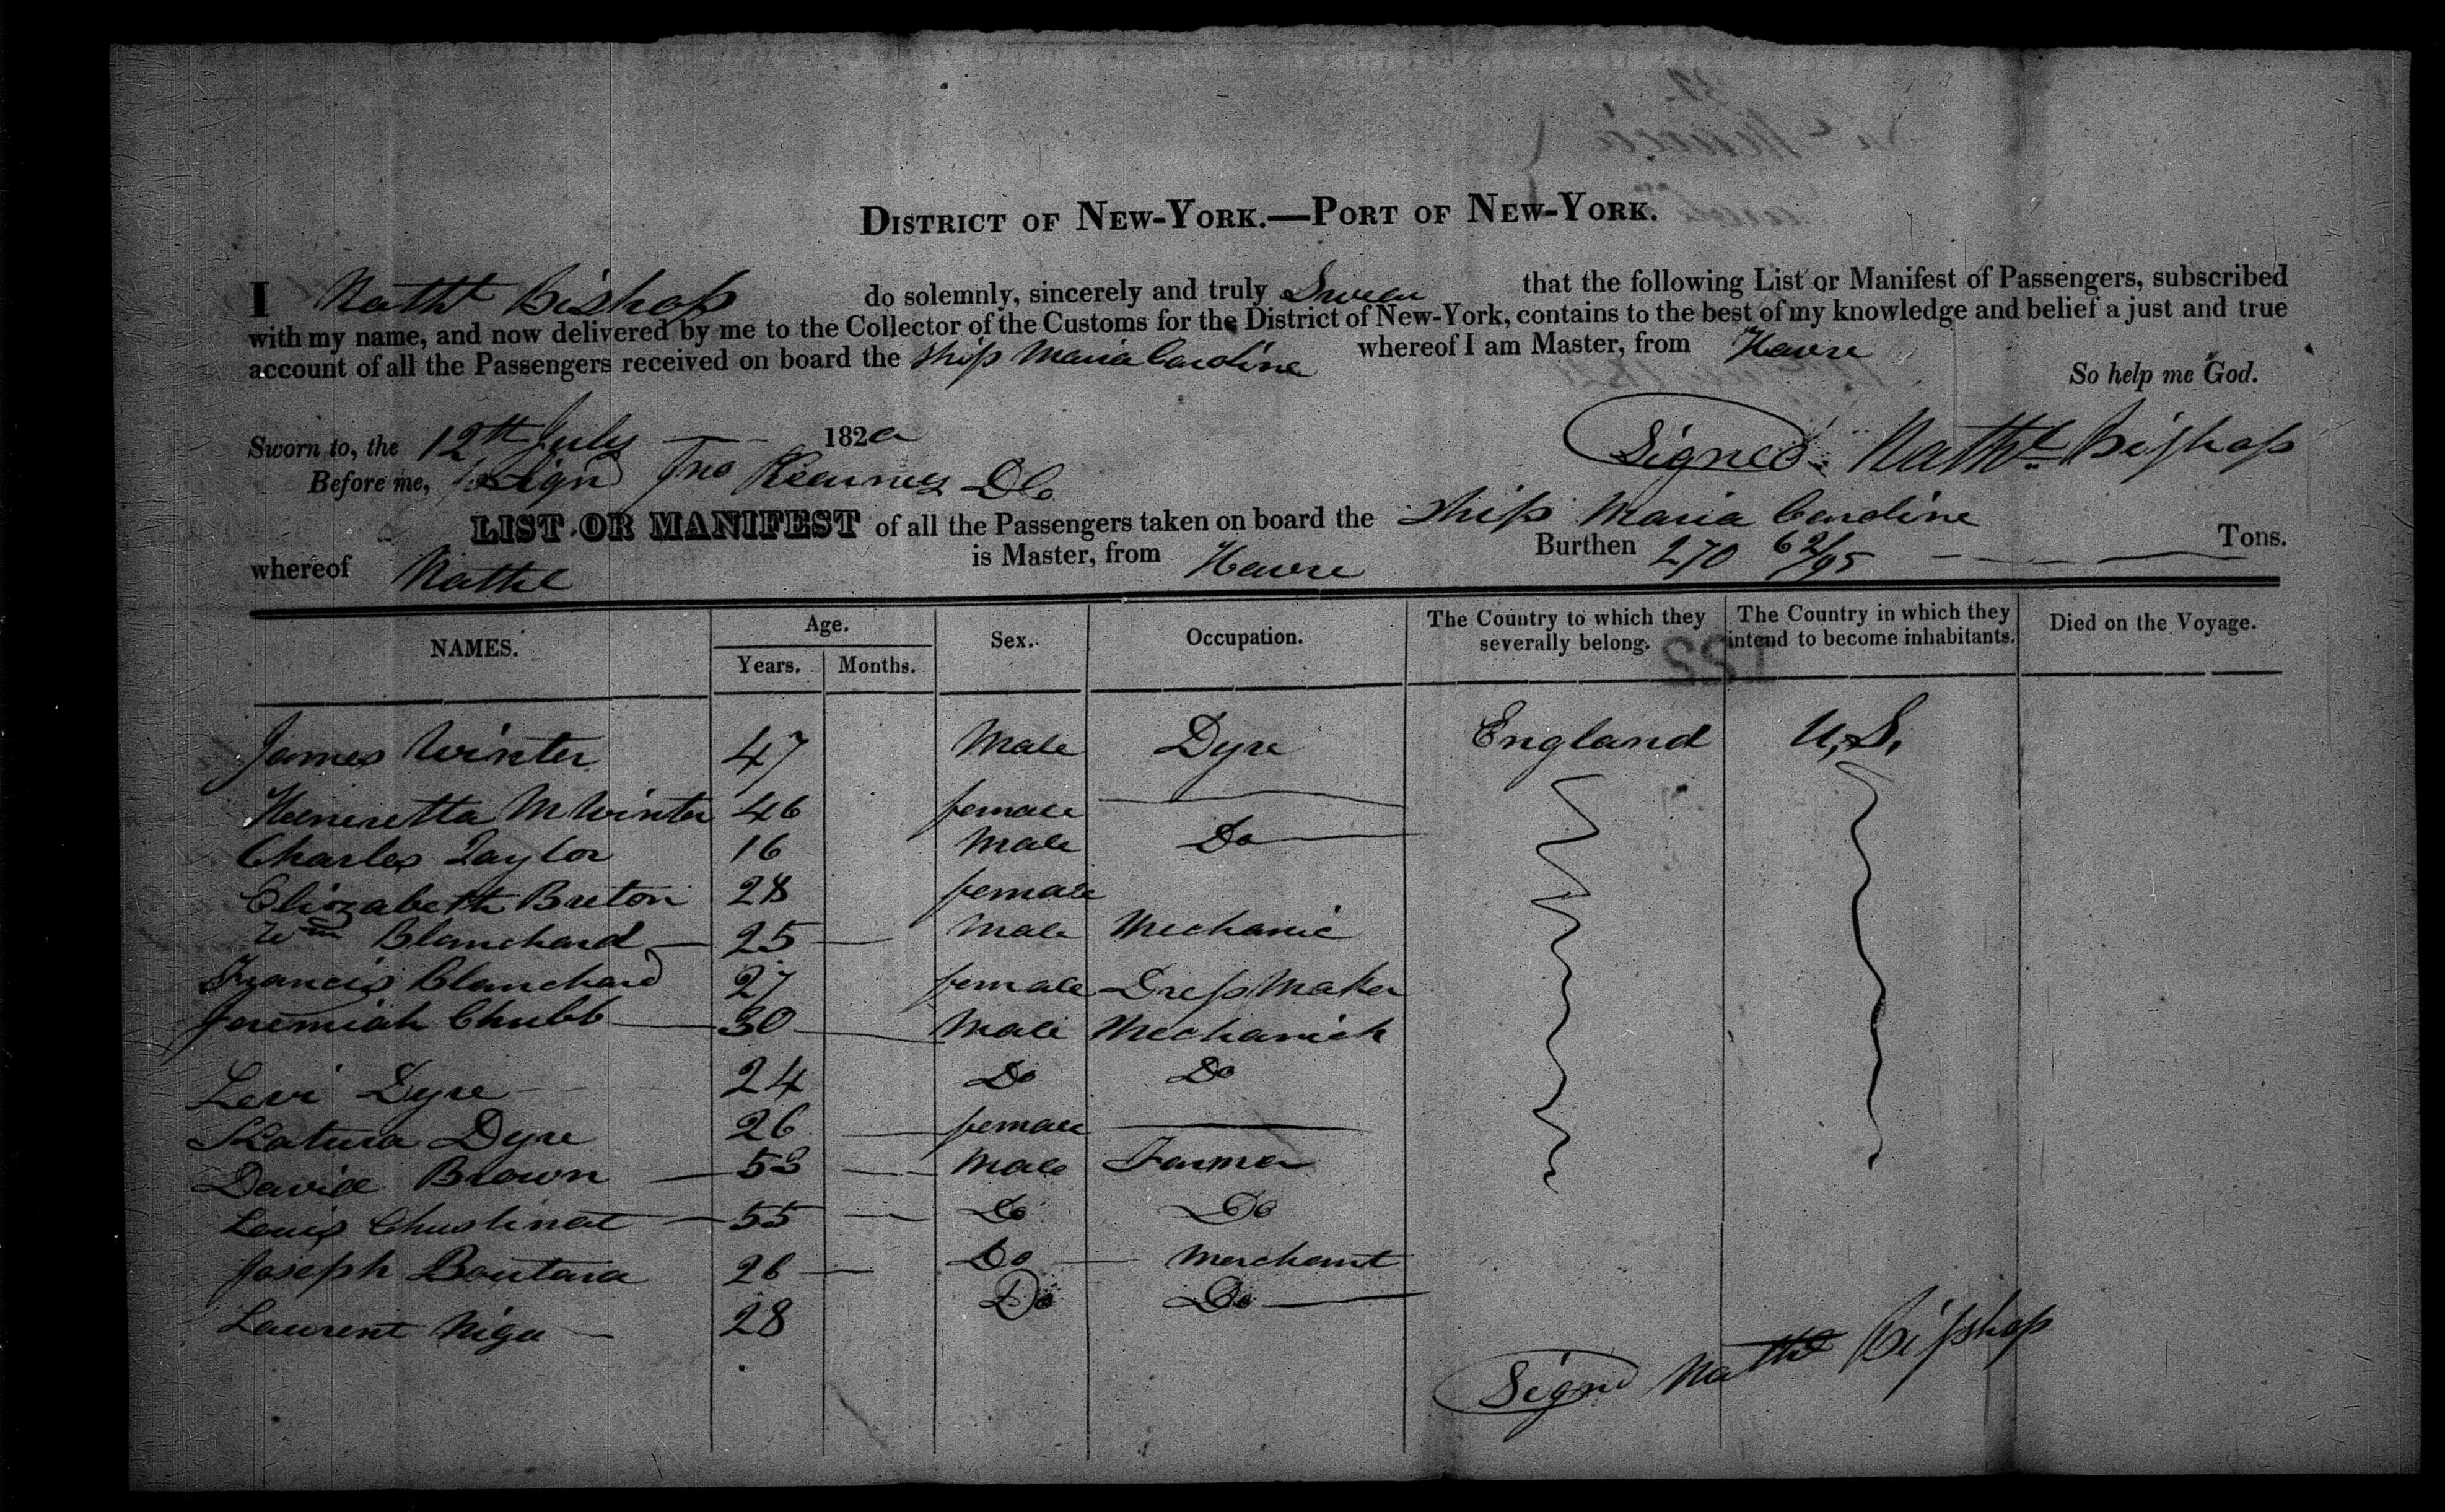 DISTRICT OF NEW-YORK.—PORT OF NEW-YORK.
I Nathl Bishop do solemnly, sincerely and truly Swear that the following List or Manifest of Passengers, subscribed
with my name, and now delivered by me to the Collector of the Customs for the District of New-York, contains to the best of my knowledge and belief a just and true
account of all the Passengers received on board the Ship Maria Caroline whereof I am Master, from Havre
So help me God.
Sworn to, the 12th July 182
Signed Nathl Bishop
Before me, Sign Jno DC
LIST OR MANIFEST of all the Passengers taken on board the Ship Maria Caroline
whereof Nathl is Master, from Havre Burthen 270 62/95 Tons.
NAMES. Age. Years. Months. Sex. Occupation. The Country to which they severally belong. The Country in which they intend to become inhabitants. Died on the Voyage.
James Winter 47 Male Dyre England U.S.
Heneretta M Winter 46 female
Charles Taylor 16 Male Do
Elizabeth Breton 28 female
Wm Blanchard 25 Male Mechanic
Francis Blanchard 27 female Dress Maker
Jeremiah Chubb 30 Male Mechanick
Levi Dyre 24 Do Do
Katura Dyre 26 female
David Brown 53 Male Farmer
Louis 55 Do Do
Joseph Boutara 26 Do Merchant
Laurent Niga 28 Do Do
Signd Nathl Bishop